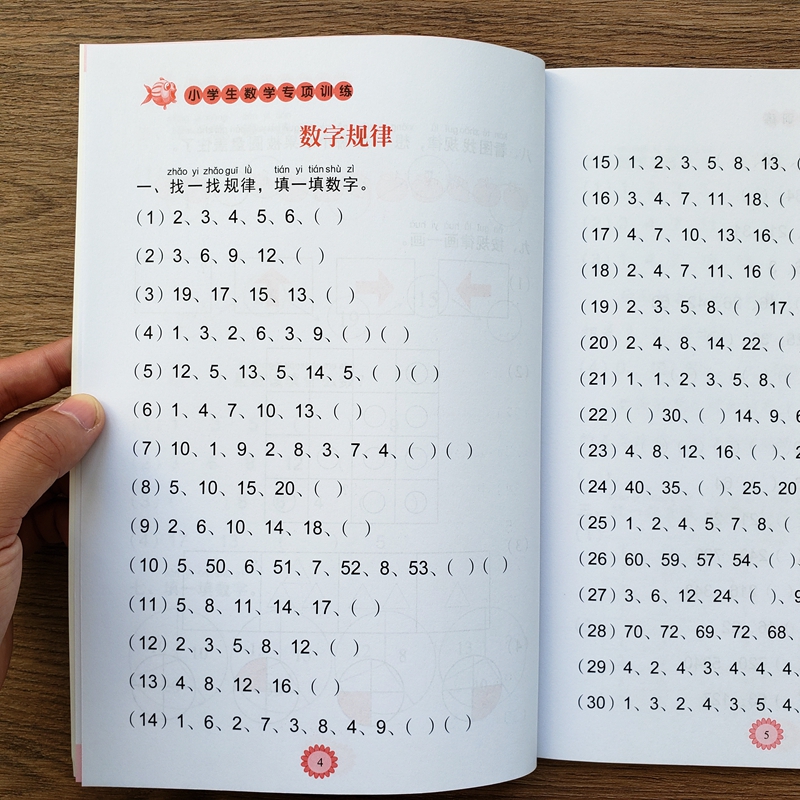 小学生数学专项训练
数字规律
zhǎo yi zhǎo guī lǜ tián yi tián shù zì
一、找一找规律，填一填数字。
（1）2、3、4、5、6、（ ）
（2）3、6、9、12、（ ）
（3）19、17、15、13、（ ）
（4）1、3、2、6、3、9、（ ）（ ）
（5）12、5、13、5、14、5、（ ）（ ）
（6）1、4、7、10、13、（ ）
（7）10、1、9、2、8、3、7、4、（ ）（ ）
（8）5、10、15、20、（ ）
（9）2、6、10、14、18、（ ）
（10）5、50、6、51、7、52、8、53、（ ）（ ）
（11）5、8、11、14、17、（ ）
（12）2、3、5、8、12、（ ）
（13）4、8、12、16、（ ）
（14）1、6、2、7、3、8、4、9、（ ）（ ）
4
（15）1、2、3、5、8、13、（
（16）3、4、7、11、18、（
（17）4、7、10、13、16、（
（18）2、4、7、11、16（ ）
（19）2、3、5、8、（ ）17、
（20）2、4、8、14、22、（
（21）1、1、2、3、5、8、（
（22）（ ）30、（ ）14、9、6
（23）4、8、12、16、（ ）、2
（24）40、35、（ ）、25、20
（25）1、2、4、5、7、8、（
（26）60、59、57、54、（ ）、
（27）3、6、12、24、（ ）、9
（28）70、72、69、72、68、
（29）4、2、4、3、4、4、4、
（30）1、3、2、4、3、5、4、
5